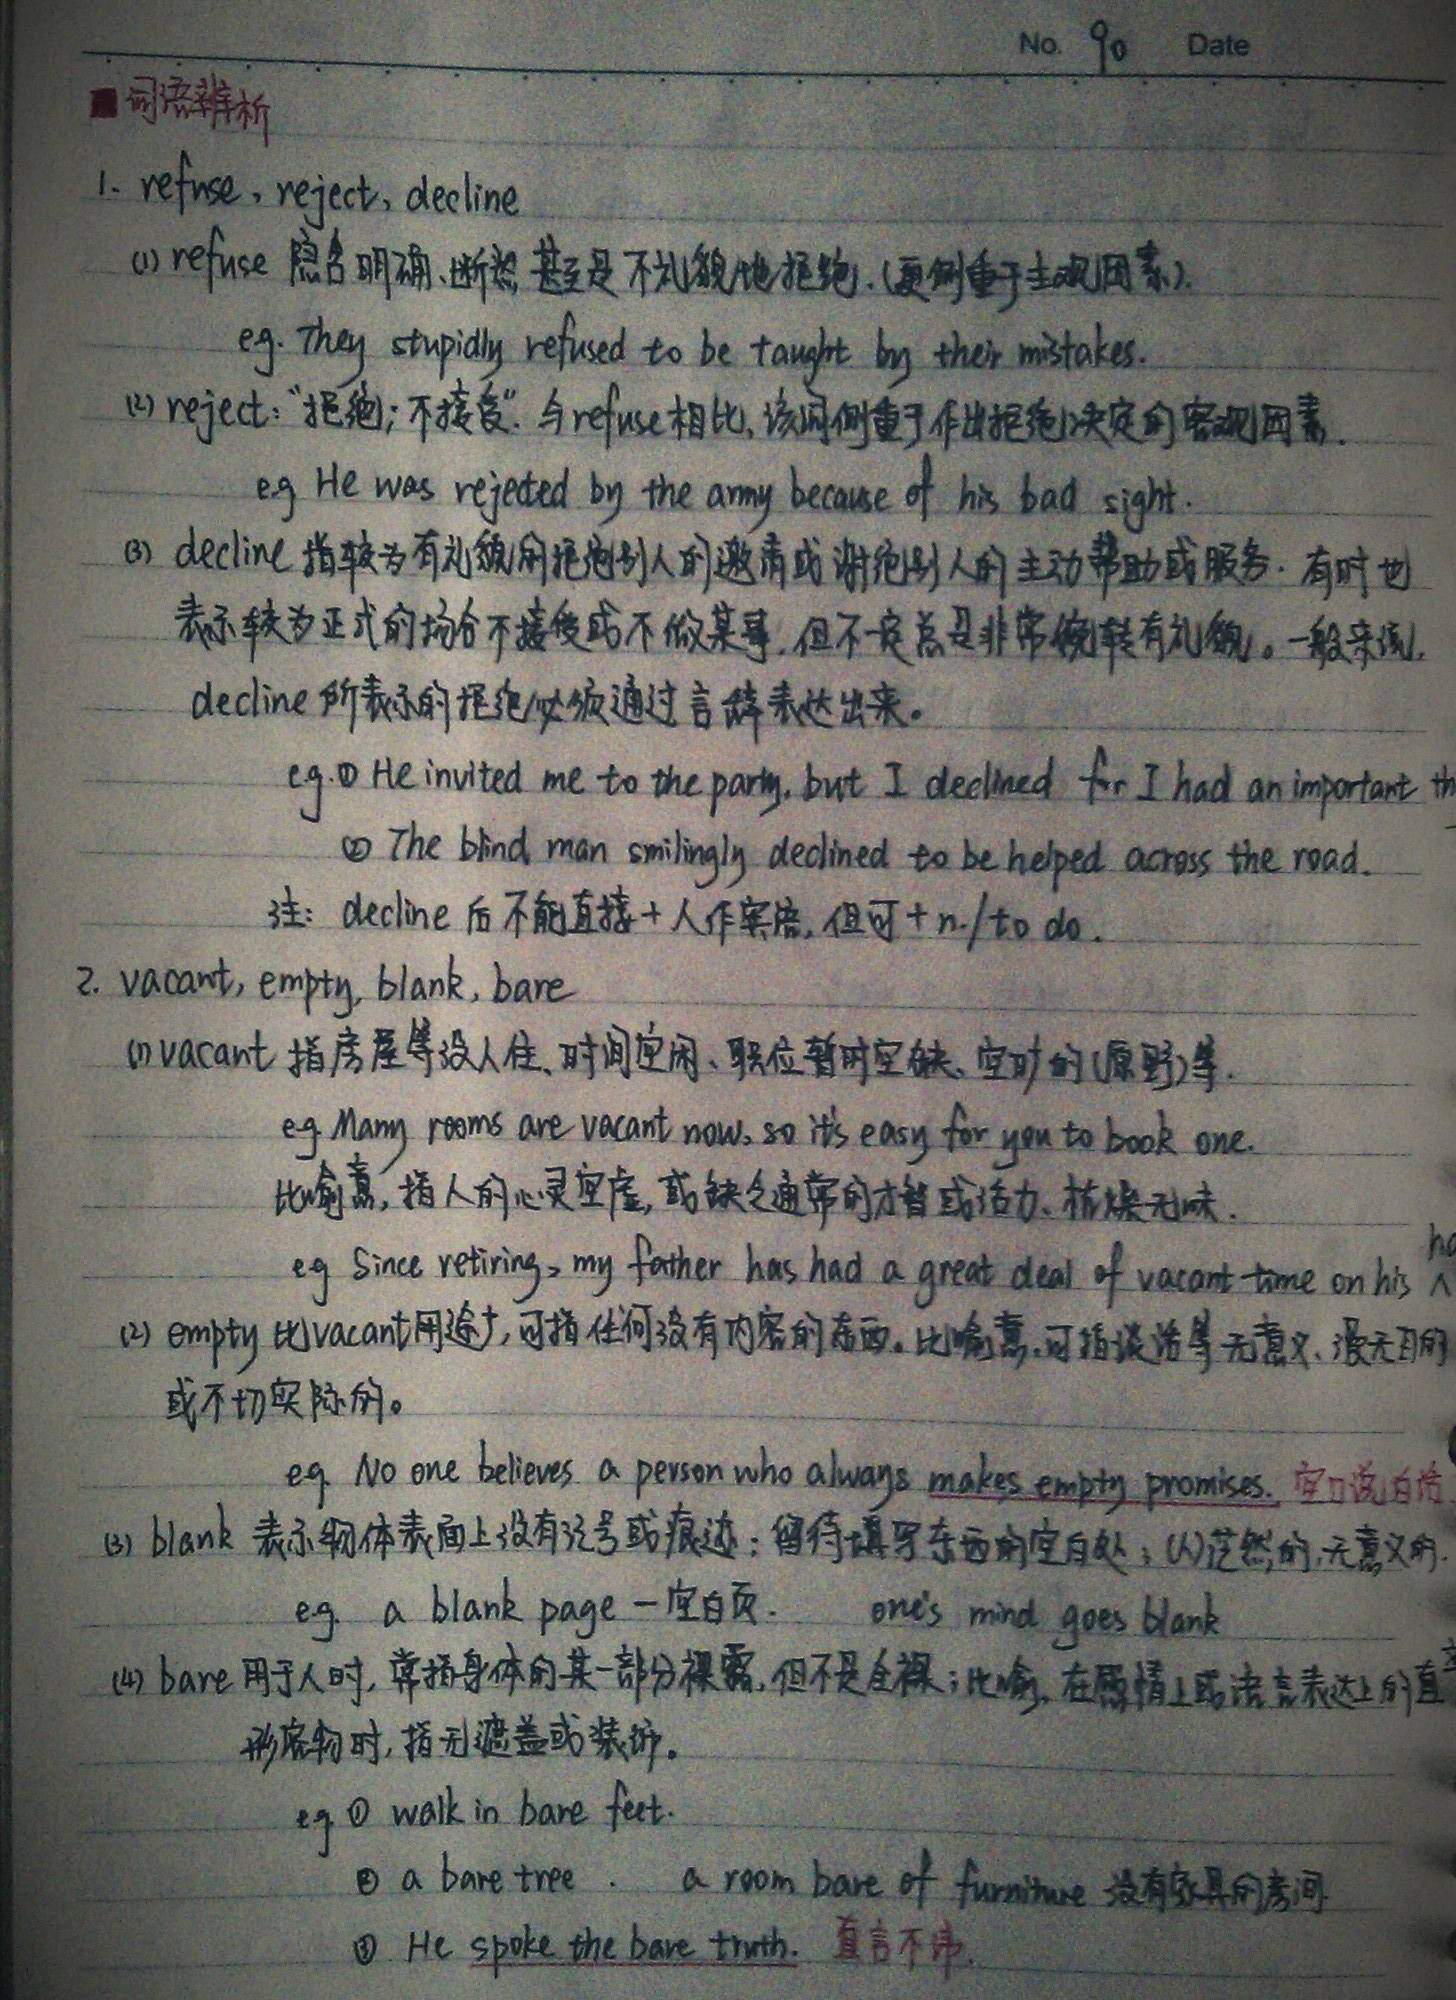 No. 90 Date
■词语辨析
1. refuse, reject, decline
(1) refuse 隐含明确、断然甚至是不礼貌地拒绝.(更侧重于主观因素).
eg. They stupidly refused to be taught by their mistakes.
(2) reject:"拒绝;不接受". 与refuse相比,该词侧重于作出拒绝决定的客观因素.
eg He was rejected by the army because of his bad sight.
(3) decline 指较为有礼貌的拒绝别人的邀请或谢绝别人的主动帮助或服务. 有时也
表示较为正式的场合不接受或不做某事.但不一定总是非常婉转有礼貌。一般来说,
decline 所表示的拒绝必须通过言辞表达出来。
eg.① He invited me to the party, but I declined for I had an important
② The blind man smilingly declined to be helped across the road.
注: decline 后不能直接+人作宾语,但可+n./to do.
2. vacant, empty, blank, bare
(1) vacant 指房屋等没人住、时间空闲、职位暂时空缺、空旷的(原野)等.
eg. Many rooms are vacant now, so it's easy for you to book one.
比喻意,指人的心灵空虚,或缺乏通常的才智或活力、枯燥无味.
eg Since retiring, my father has had a great deal of vacant time on his
(2) empty 比vacant用途广,可指任何没有内容的东西。比喻意,可指谈话等无意义、漫无目的
或不切实际的。
eg. No one believes a person who always makes empty promises. 空口说白话
(3) blank 表示物体表面上没有记号或痕迹;留待填写东西的空白处;(人)茫然的,无意义的.
eg. a blank page 一空白页. one's mind goes blank
(4) bare 用于人时,常指身体的某一部分裸露,但不是全裸;比喻,在感情上或语言表达上的直
形容物时,指无遮盖或装饰。
eg.① walk in bare feet.
② a bare tree . a room bare of furniture 没有家具的房间
③ He spoke the bare truth. 直言不讳.